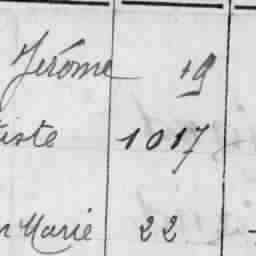 Jérome 19
iste 1017
n Marie 22